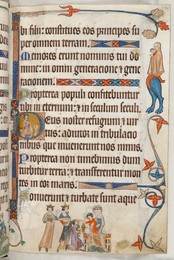 bi filii: constitues eos principes su
per omnem terram.
Memores erunt nominis tui do
mine: in omni generatione et gene
racionem.
Propterea populi confitebuntur
tibi in eternum: et in seculum seculi.
Deus noster refugium et uir
tus: adiutor in tribulacio
nibus que inuenerunt nos nimis.
Propterea non timebimus dum
turbabitur terra: et transferentur mon
tes in cor maris.
Sonuerunt et turbate sunt aque